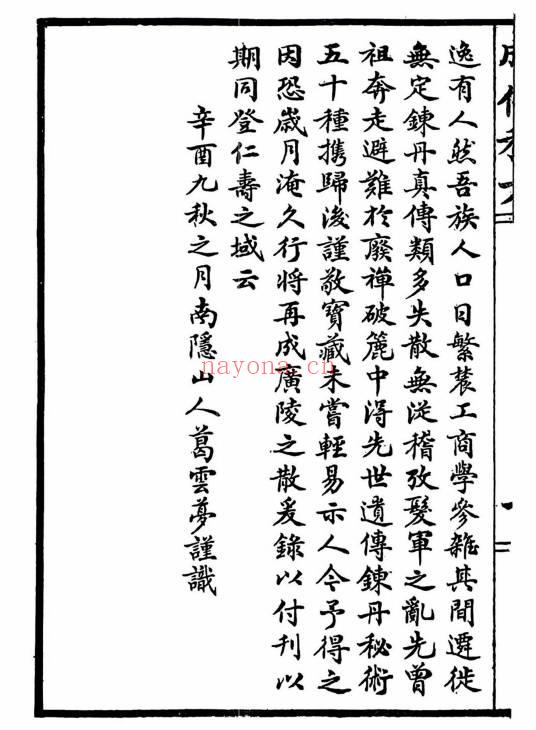 逸有人然吾族人口日繁農工商學參雜其間遷徙
無定鍊丹真傳類多失散無從稽攷髮軍之亂先曾
祖奔走避難於廢禪破簏中得先世遺傳鍊丹秘術
五十種攜歸後謹敬寶藏未嘗輕易示人今予得之
因恐歲月淹久行將再成廣陵之散爰錄以付刊以
期同登仁壽之域云
辛酉九秋之月南隱山人葛雲夢謹識
nayona.cn